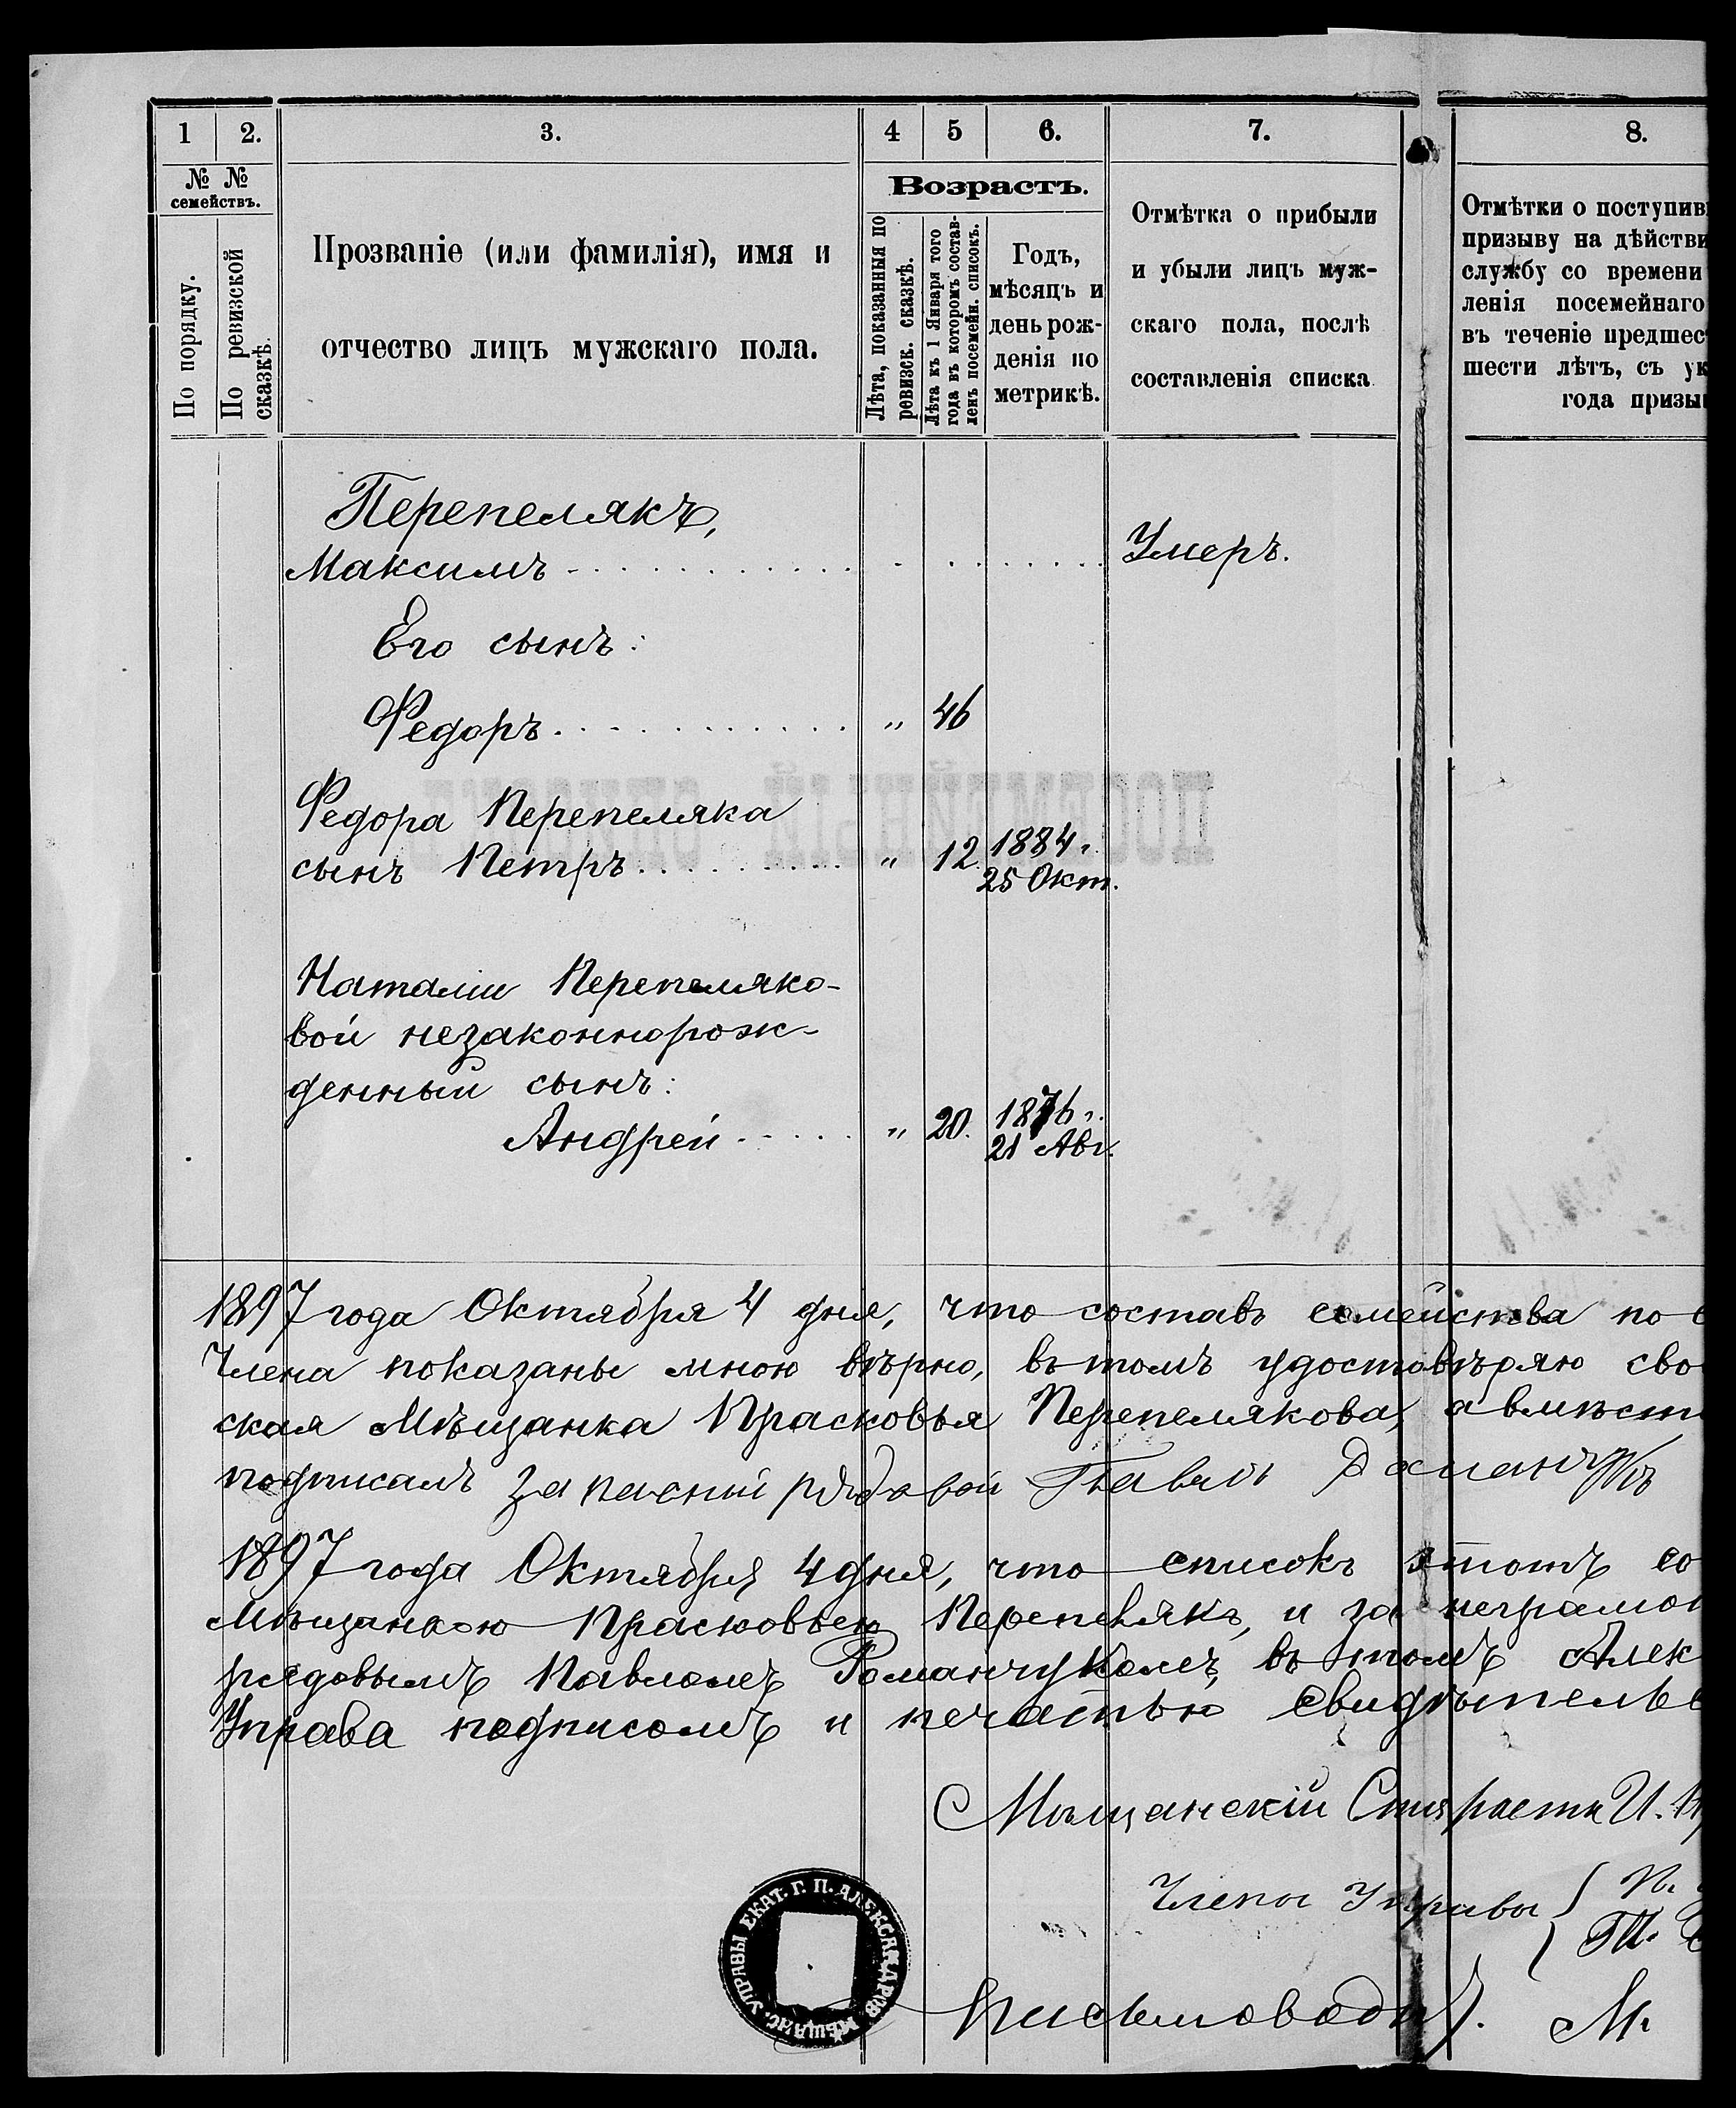 1 2. 3. 4 5 6. 7. 8.
№ №
семействъ.
По порядку.
По ревизской
сказкѣ.
Прозваніе (или фамилія), имя и
отчество лицъ мужскаго пола.
Возрастъ.
Лѣта, показанныя по
ревизск. сказкѣ.
Лѣта къ 1 Января того
года въ которомъ состав-
ленъ посемейн. списокъ.
Годъ,
мѣсяцъ и
день рож-
денія по
метрикѣ.
Отмѣтка о прибыли
и убыли лицъ муж-
скаго пола, послѣ
составленія списка
Отмѣтки о поступив
призыву на дѣйстви
службу со времени
ленія посемейнаго
въ теченіе предшес
шести лѣтъ, съ ук
года призы
Перепелякъ,
Максимъ Умеръ.
Его сынъ:
Федоръ „ 46
Федора Перепеляка
сынъ Петръ „ 12. 1884 г.
25 Окт.
Наталіи Перепеляко-
вой незаконнорож-
денный сынъ:
Андрей „ 20. 1876 г.
21 Авг.
ПОСЕМЕЙНЫЙ СПИСОКЪ
1897 года Октября 4 дня, что составъ семейства по
Члена показаны мною вѣрно, въ томъ удостовѣряю сво
ская Мѣщанка Прасковья Перепелякова, а вмѣст
подписалъ Запасный рядовой Павелъ Романчукъ
1897 года Октября 4 дня, что списокъ этотъ со
Мѣщанкою Прасковьею Перепелякъ, и за неграмот
рядовымъ Павломъ Романчукомъ, въ томъ Алек
Управа подписомъ и печатью свидѣтельс
Мѣщанскій Староста И.
Члены Управы П.
М.
Письмоводит. М.
МѢЩАНС. УПРАВЫ ЕКАТ. Г. П. АЛЕКСАНДРОВ.